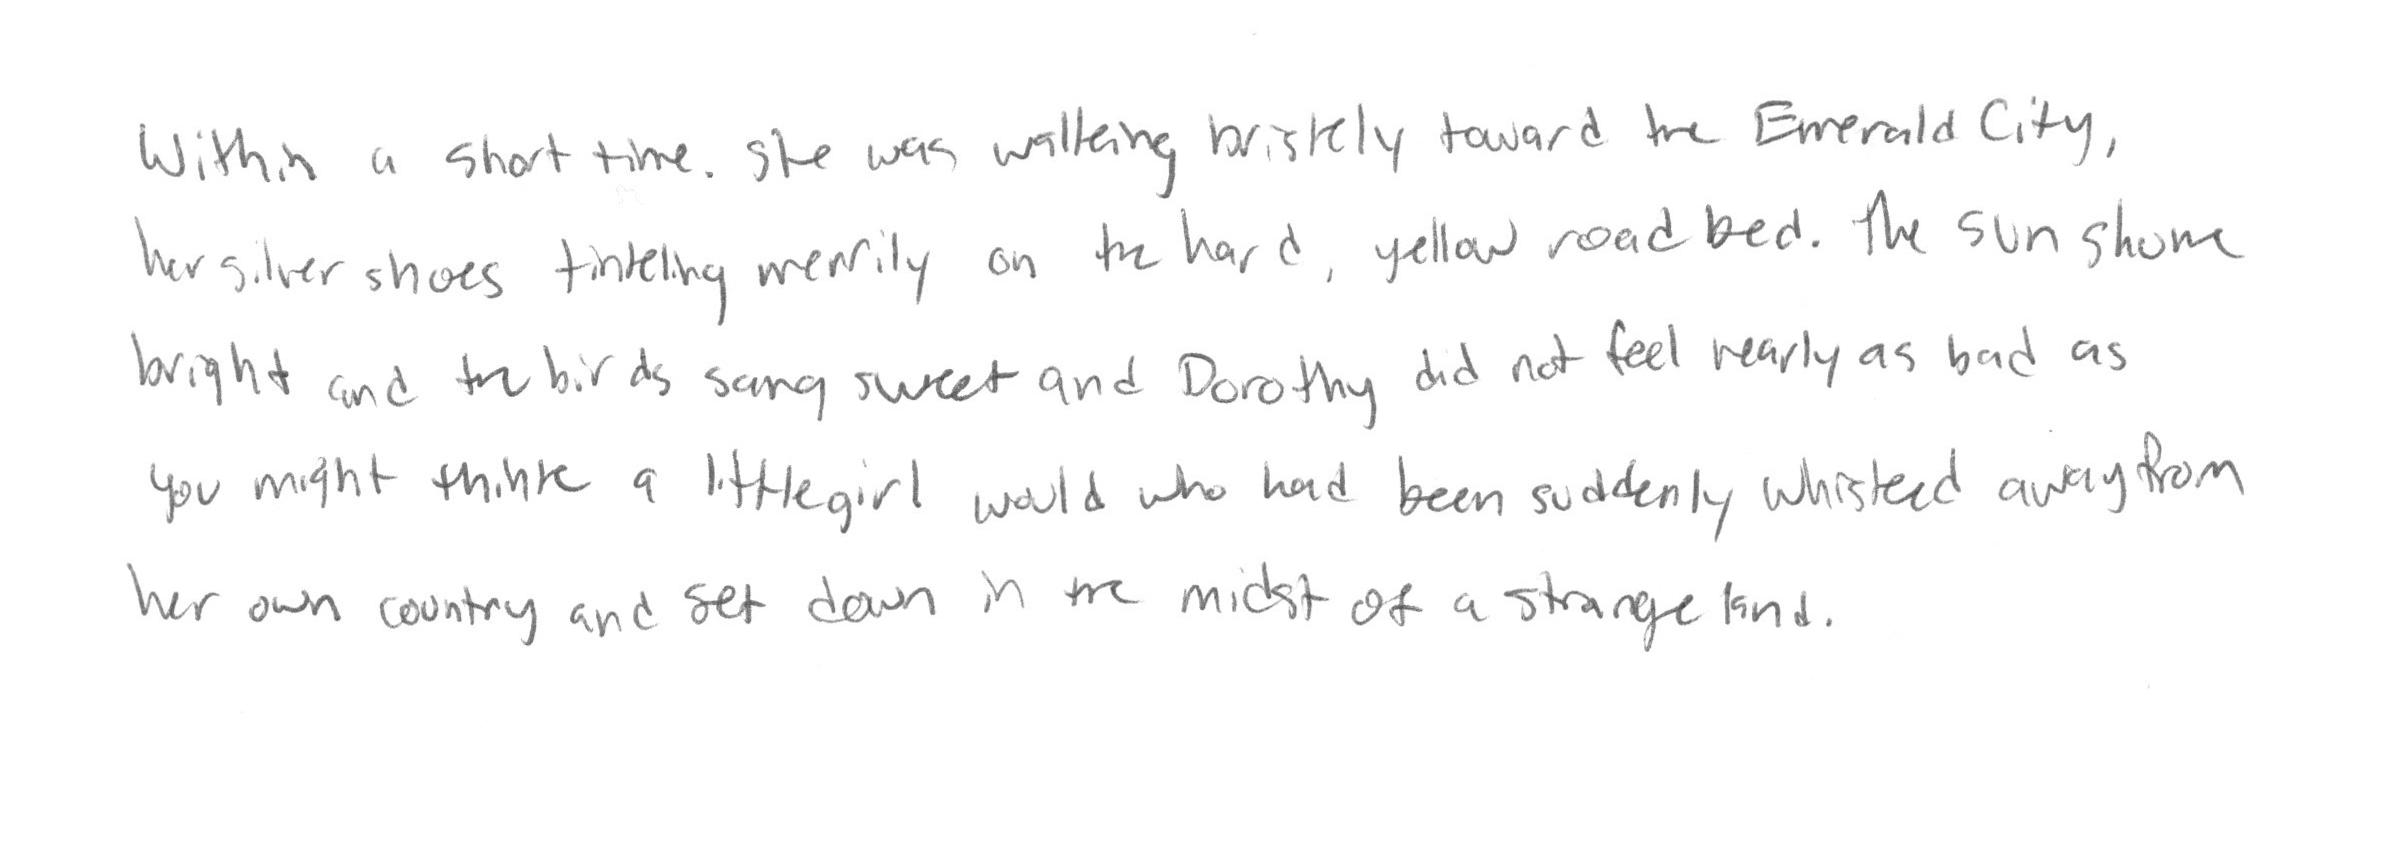 Within a short time. She was walking briskly toward the Emerald City,
her silver shoes tinkling merrily on the hard, yellow road bed. The sun shone
bright and the birds sang sweet and Dorothy did not feel nearly as bad as
you might think a little girl would who had been suddenly whisked away from
her own country and set down in the midst of a strange land.